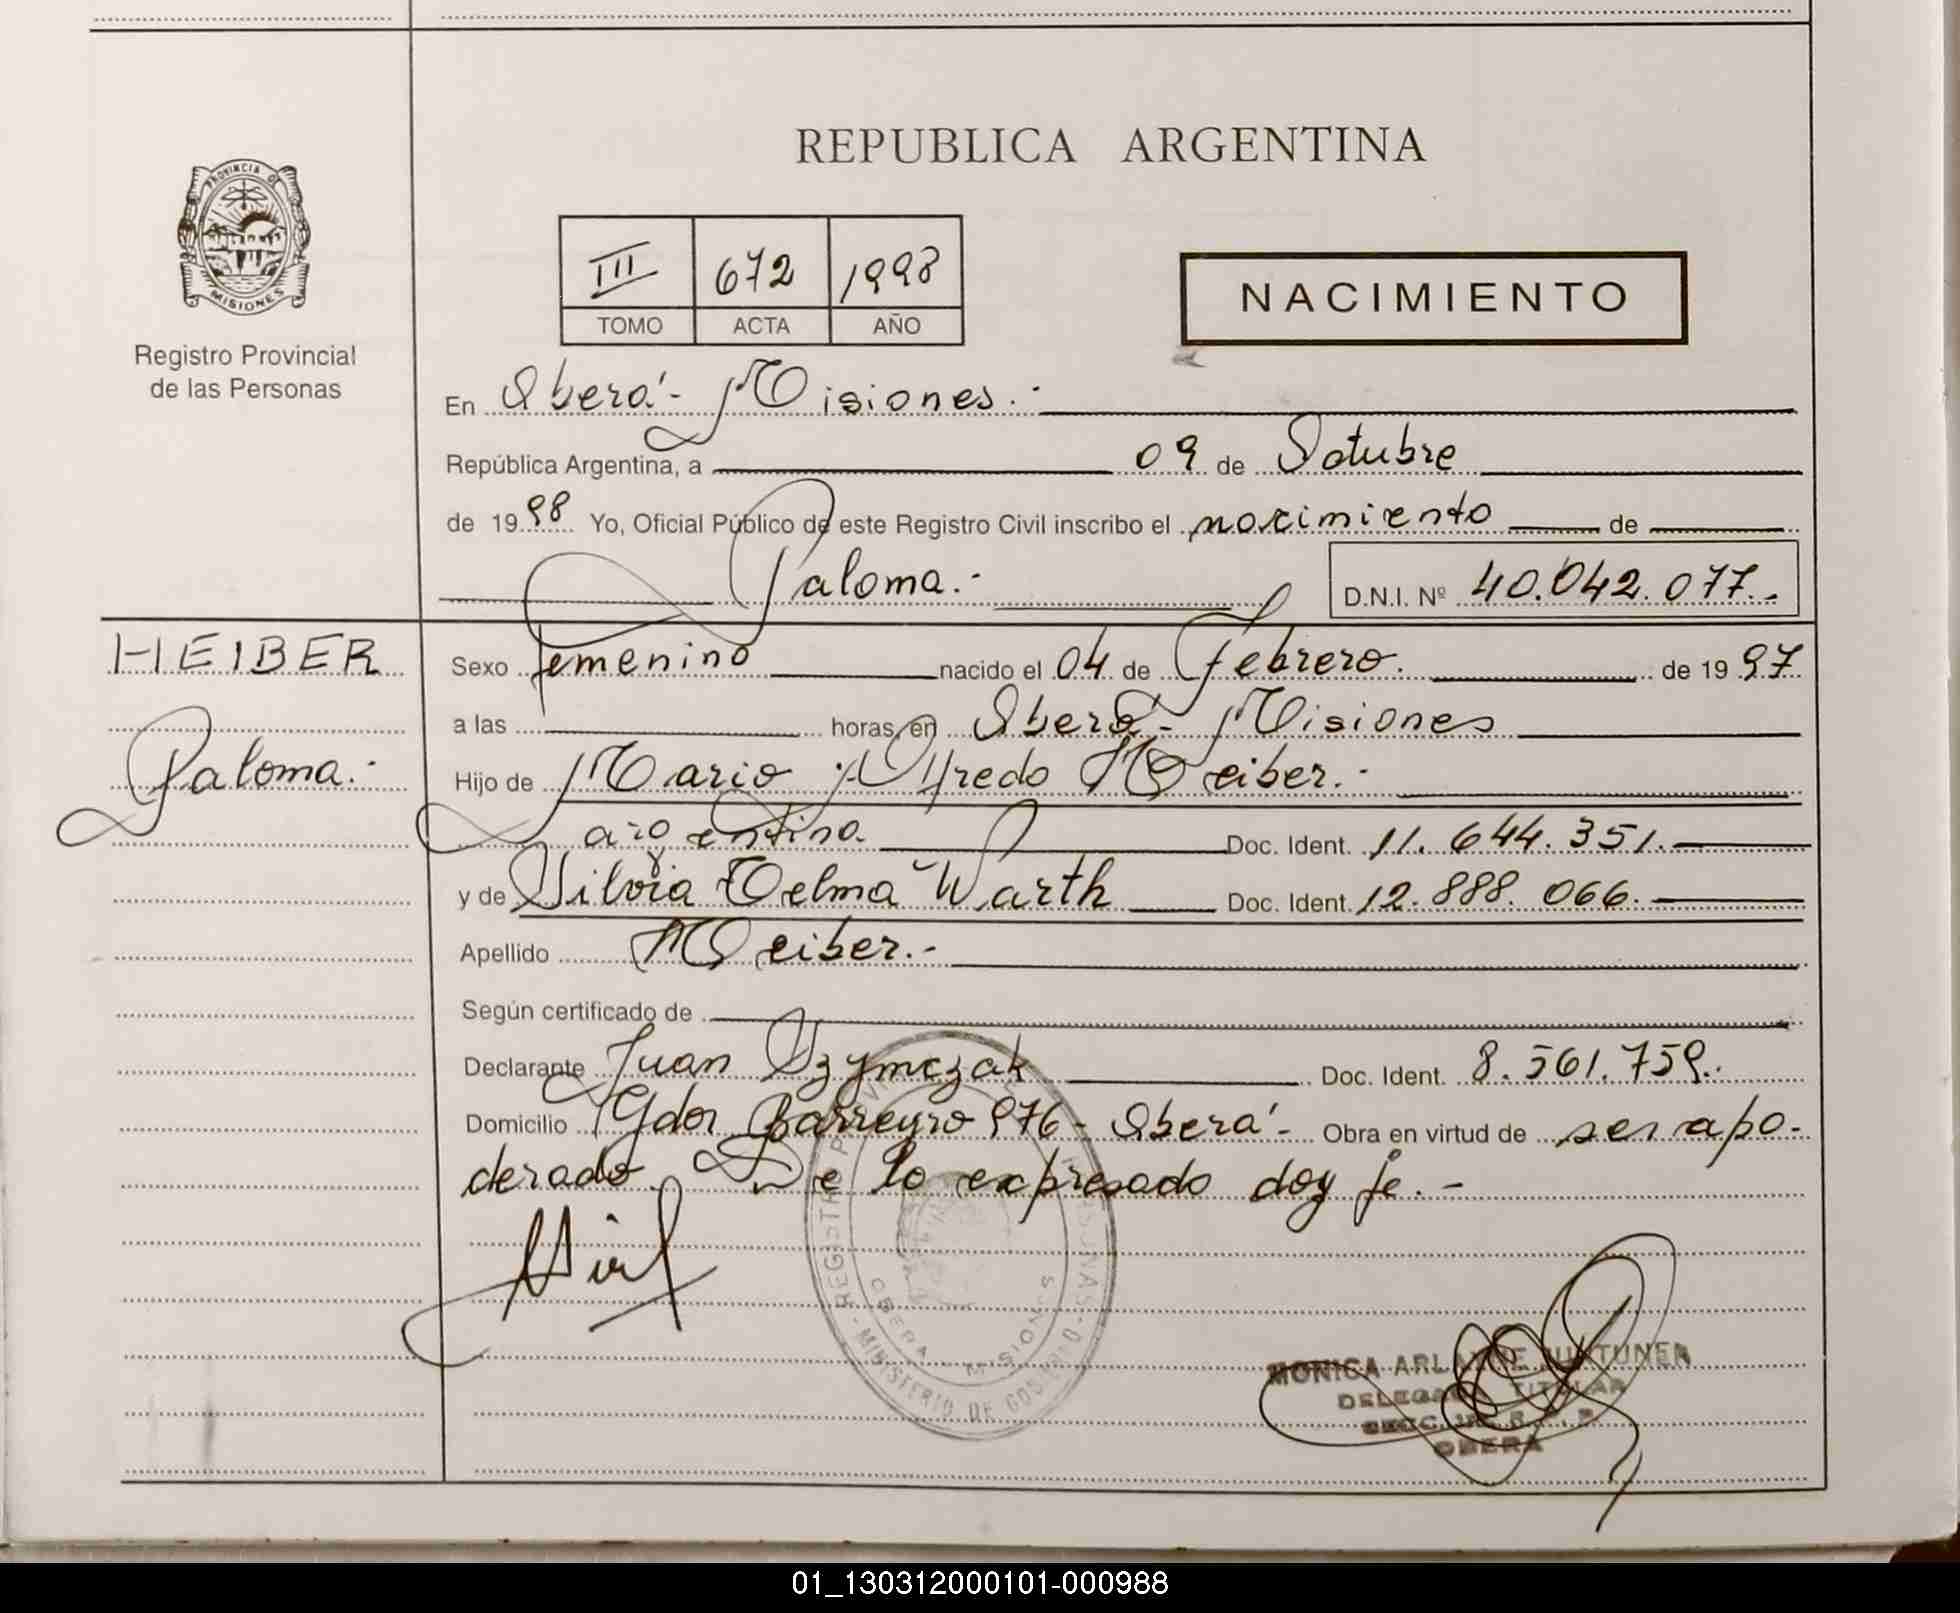 REPUBLICA ARGENTINA
PROVINCIA DE
MISIONES
Registro Provincial
de las Personas
III 672 1998
TOMO ACTA AÑO
NACIMIENTO
En Oberá - Misiones.-
República Argentina, a 09 de Octubre
de 1998 Yo, Oficial Público de este Registro Civil inscribo el nacimiento de
Paloma.- D.N.I. Nº 40.042.077.-
HEIBER
Paloma.-
Sexo femenino nacido el 04 de Febrero. de 1997
a las horas, en Oberá - Misiones
Hijo de Mario Alfredo Heiber.-
argentino Doc. Ident. 11.644.351.
y de Silvia Telma Warth Doc. Ident. 12.888.066.
Apellido Heiber.-
Según certificado de
Declarante Juan Szymczak Doc. Ident. 8.561.759.
Domicilio Gdor Barreyro 976 - Oberá - Obra en virtud de ser apo-
derado. De lo expresado doy fe.-
MONICA ARLA
DELEGADA TITULAR
OBERA
REGISTRO PROV PERSONAS
MINISTERIO DE GOBIERNO
OBERA MISIONES
01_130312000101-000988